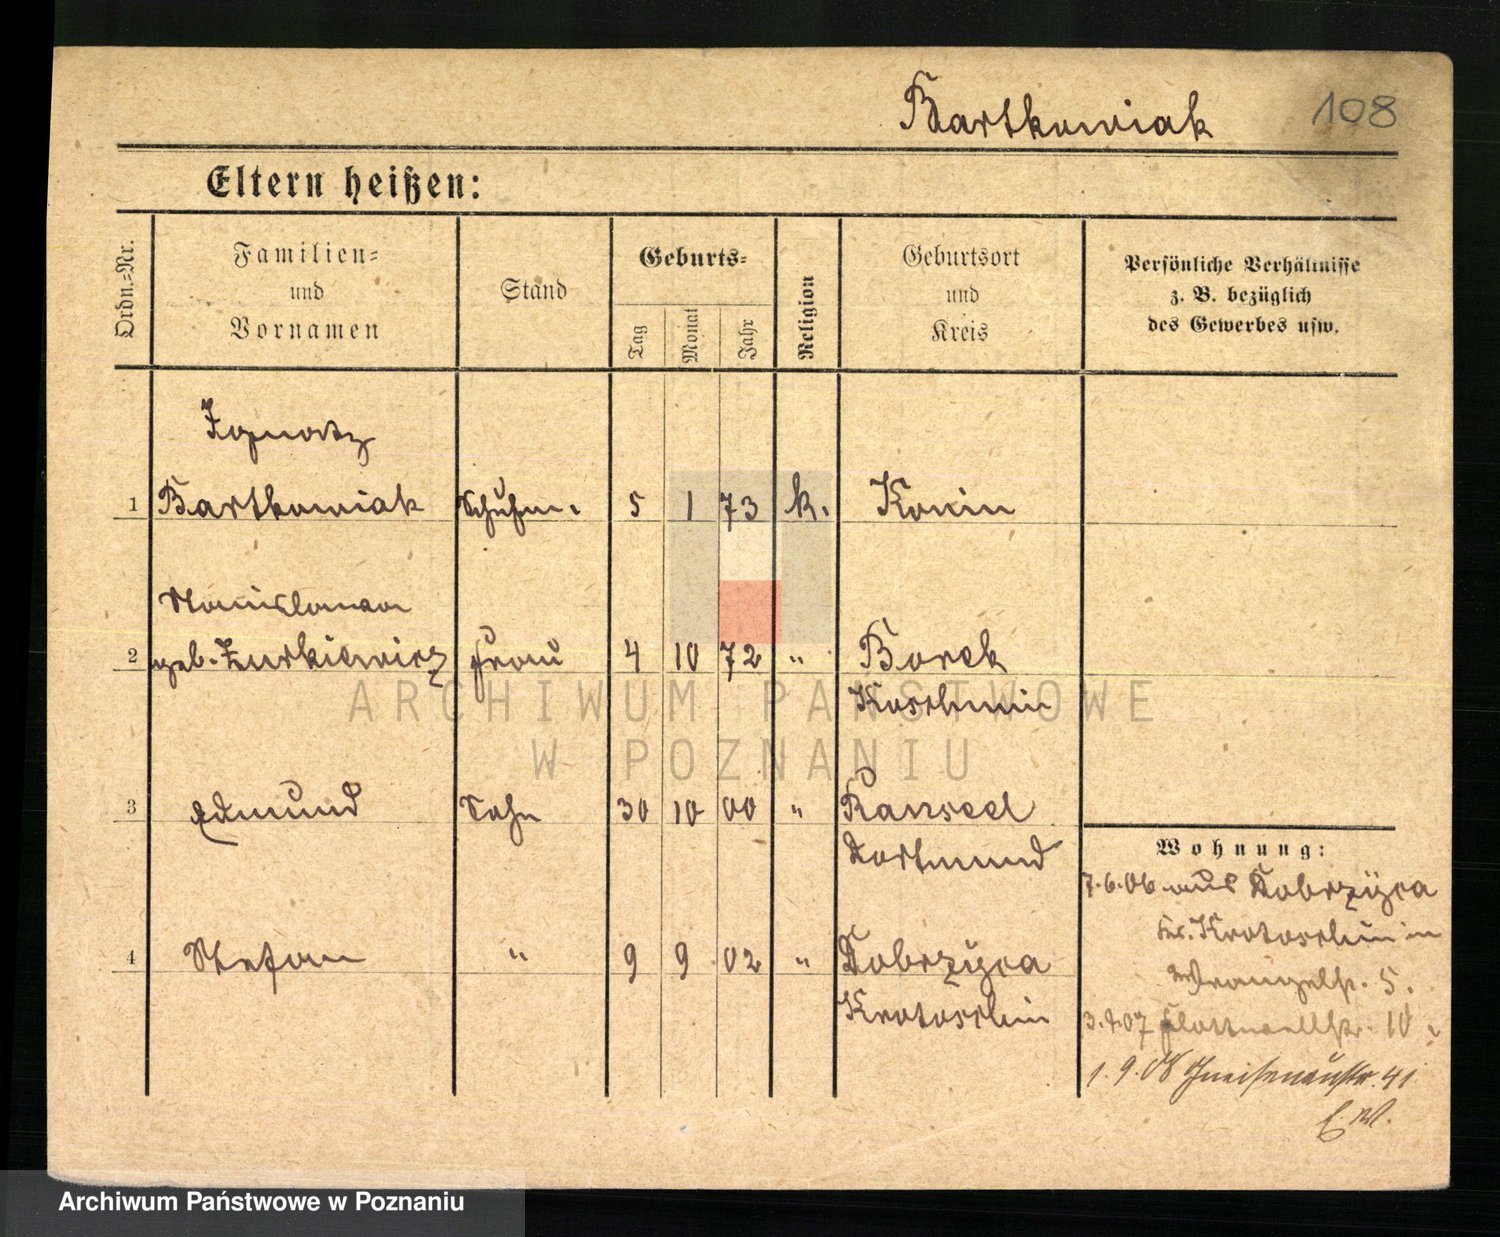 Bartkowiak 108
Eltern heißen:
Ordn.-Nr.
Familien-
und
Vornamen
Stand
Geburts-
Tag
Monat
Jahr
Religion
Geburtsort
und
Kreis
Persönliche Verhältnisse
z. B. bezüglich
des Gewerbes usw.
Ignatz
1 Bartkowiak Schuhm. 5 1 73 k. Konin
Stanislawa
2 geb. Zurkiewicz Frau 4 10 72 " Borek
Koschmin
3 Edmund Sohn 30 10 00 " Rauxel
Dortmund
4 Stefan " 9 9 02 " Dobrzyca
Krotoschin
Wohnung:
7.6.06 aus Dobrzyca
Kr. Krotoschin in
Wrangelstr. 5.
3.4.07 Flottwellstr. 10.
1.9.08 Gneisenaustr. 41
ARCHIWUM PAŃSTWOWE
W POZNANIU
Archiwum Państwowe w Poznaniu